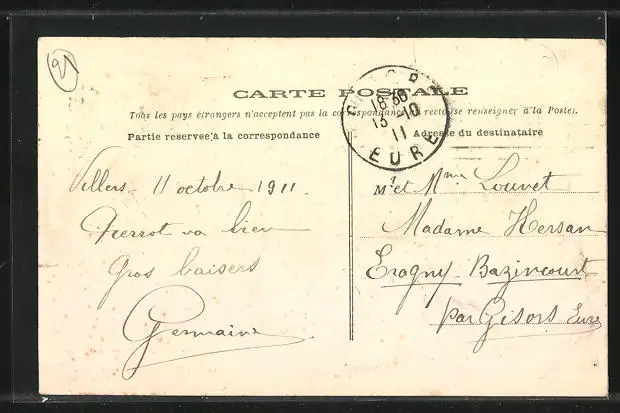 21
CARTE POSTALE
Tous les pays étrangers n'acceptent pas la correspondance au recto (se renseigner à la Poste).
Partie reservée à la correspondance
Adresse du destinataire
18 30
13 - 10
11
EURE
Villers - 11 octobre 1911.
Pierrot va bien
Gros baisers
Germaine
Mr et Mme Louvet
Madame Hersan
Eragny-Bazincourt
par Gisors Eure